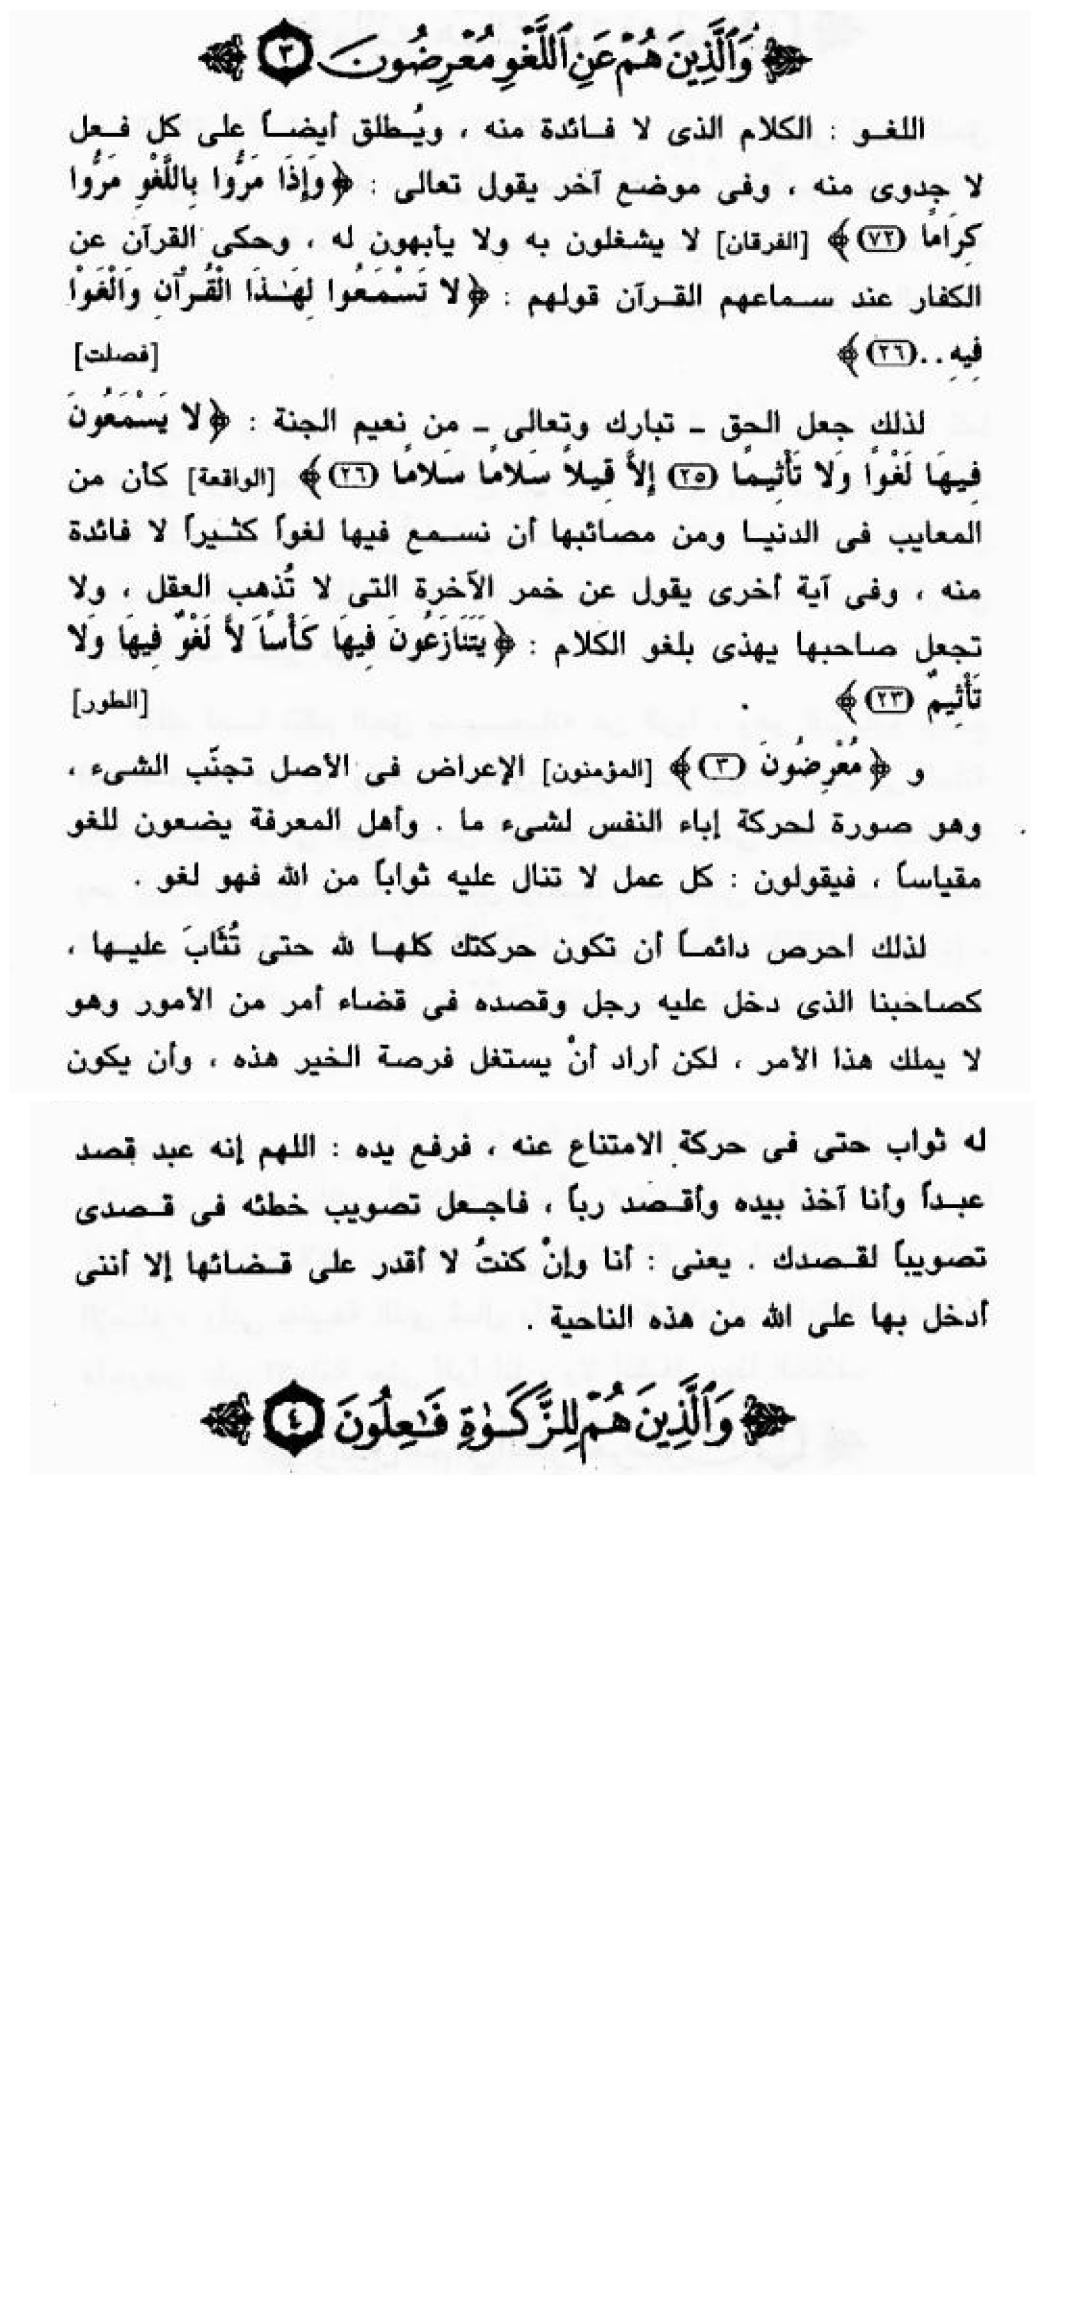 ﴿ وَٱلَّذِينَ هُمْ عَنِ ٱللَّغْوِ مُعْرِضُونَ ٣ ﴾
اللغو : الكلام الذى لا فائدة منه ، ويُطلق أيضاً على كل فعل
لا جدوى منه ، وفى موضع آخر يقول تعالى : ﴿ وَإِذَا مَرُّوا بِاللَّغْوِ مَرُّوا
كِرَامًا (٧٢) ﴾ [الفرقان] لا يشغلون به ولا يأبهون له ، وحكى القرآن عن
الكفار عند سماعهم القرآن قولهم : ﴿ لا تَسْمَعُوا لِهَـٰذَا الْقُرْآنِ وَالْغَوْا
فِيهِ .. (٢٦) ﴾ [فصلت]
لذلك جعل الحق - تبارك وتعالى - من نعيم الجنة : ﴿ لا يَسْمَعُونَ
فِيهَا لَغْوًا وَلا تَأْثِيمًا (٢٥) إِلاَّ قِيلاً سَلامًا سَلامًا (٢٦) ﴾ [الواقعة] كأن من
المعايب فى الدنيا ومن مصائبها أن نسمع فيها لغواً كثيراً لا فائدة
منه ، وفى آية أخرى يقول عن خمر الآخرة التى لا تُذهب العقل ، ولا
تجعل صاحبها يهذى بلغو الكلام : ﴿ يَتَنَازَعُونَ فِيهَا كَأْسًا لاَّ لَغْوٌ فِيهَا وَلا
تَأْثِيمٌ (٢٣) ﴾ . [الطور]
و ﴿ مُعْرِضُونَ (٣) ﴾ [المؤمنون] الإعراض فى الأصل تجنّب الشىء ،
وهو صورة لحركة إباء النفس لشىء ما . وأهل المعرفة يضعون للغو
مقياساً ، فيقولون : كل عمل لا تنال عليه ثواباً من الله فهو لغو .
لذلك احرص دائماً أن تكون حركتك كلها لله حتى تُثَابَ عليها ،
كصاحبنا الذى دخل عليه رجل وقصده فى قضاء أمر من الأمور وهو
لا يملك هذا الأمر ، لكن أراد أنْ يستغل فرصة الخير هذه ، وأن يكون
له ثواب حتى فى حركة الامتناع عنه ، فرفع يده : اللهم إنه عبد قصد
عبداً وأنا آخذ بيده وأقصد رباً ، فاجعل تصويب خطئه فى قصدى
تصويباً لقصدك . يعنى : أنا وإنْ كنتُ لا أقدر على قضائها إلا أننى
أدخل بها على الله من هذه الناحية .
﴿ وَٱلَّذِينَ هُمْ لِلزَّكَوٰةِ فَٰعِلُونَ ٤ ﴾